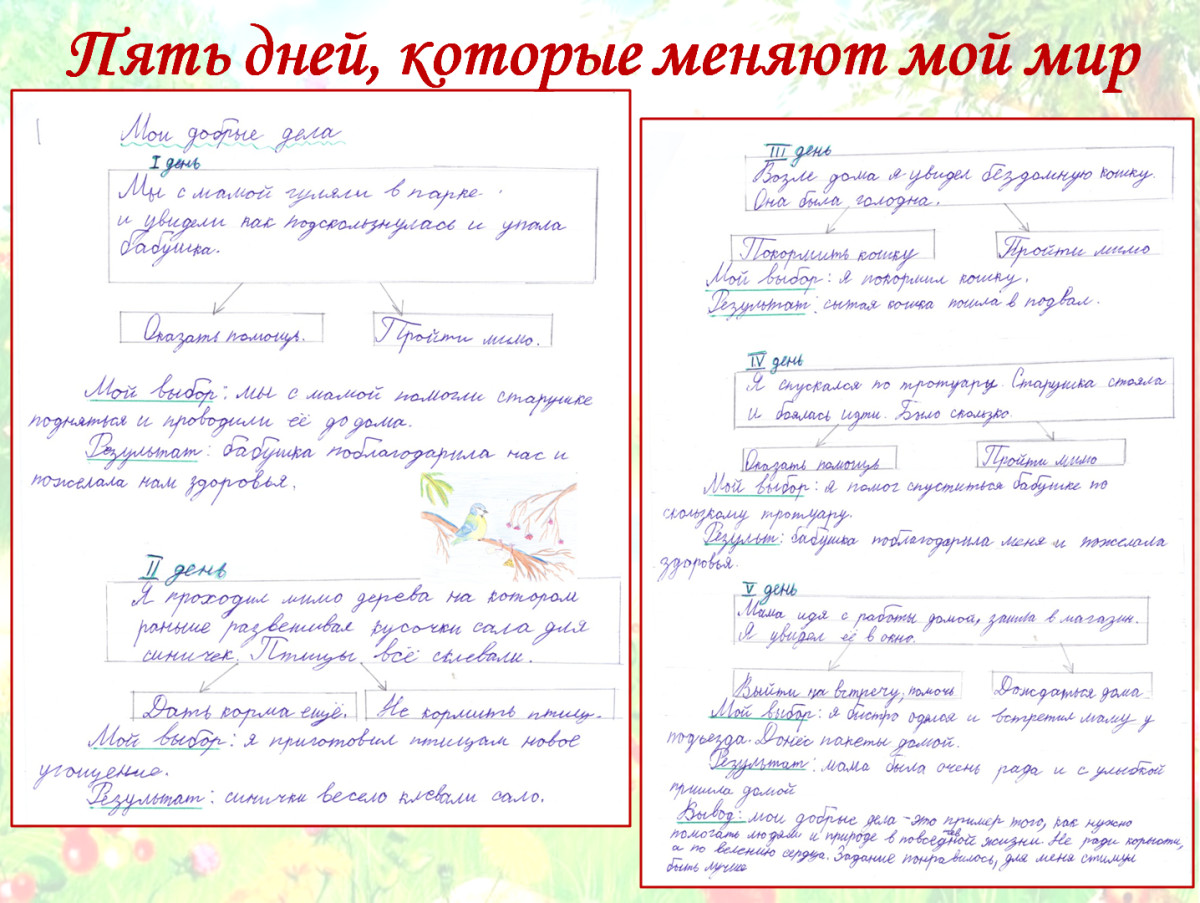 Пять дней, которые меняют мой мир
Мои добрые дела
I день
Мы с мамой гуляли в парке
и увидели как подскользнулась и упала
бабушка.
Оказать помощь.
Пройти мимо.
Мой выбор: мы с мамой помогли старушке
подняться и проводили её до дома.
Результат: бабушка поблагодарила нас и
пожелала нам здоровья.
II день
Я проходил мимо дерева на котором
раньше развешивал кусочки сала для
синичек. Птицы всё склевали.
Дать корма ещё.
Не кормить птиц.
Мой выбор: я приготовил птицам новое
угощение.
Результат: синички весело клевали сало.
III день
Возле дома я увидел бездомную кошку.
Она была голодна.
Покормить кошку
Пройти мимо
Мой выбор: я покормил кошку.
Результат: сытая кошка пошла в подвал.
IV день
Я спускался по тротуару. Старушка стояла
и боялась идти. Было скользко.
Оказать помощь
Пройти мимо
Мой выбор: я помог спуститься бабушке по
скользкому тротуару.
Результ: бабушка поблагодарила меня и пожелала
здоровья.
V день
Мама идя с работы домой, зашла в магазин.
Я увидел её в окно.
Выйти на встречу, помочь
Дождаться дома
Мой выбор: я быстро оделся и встретил маму у
подъезда. Донёс пакеты домой.
Результат: мама была очень рада и с улыбкой
пришла домой
Вывод: мои добрые дела - это пример того, как нужно
помогать людям и природе в повседневной жизни. Не ради корысти,
а по велению сердца. Задание понравилось, для меня стимул
быть лучше